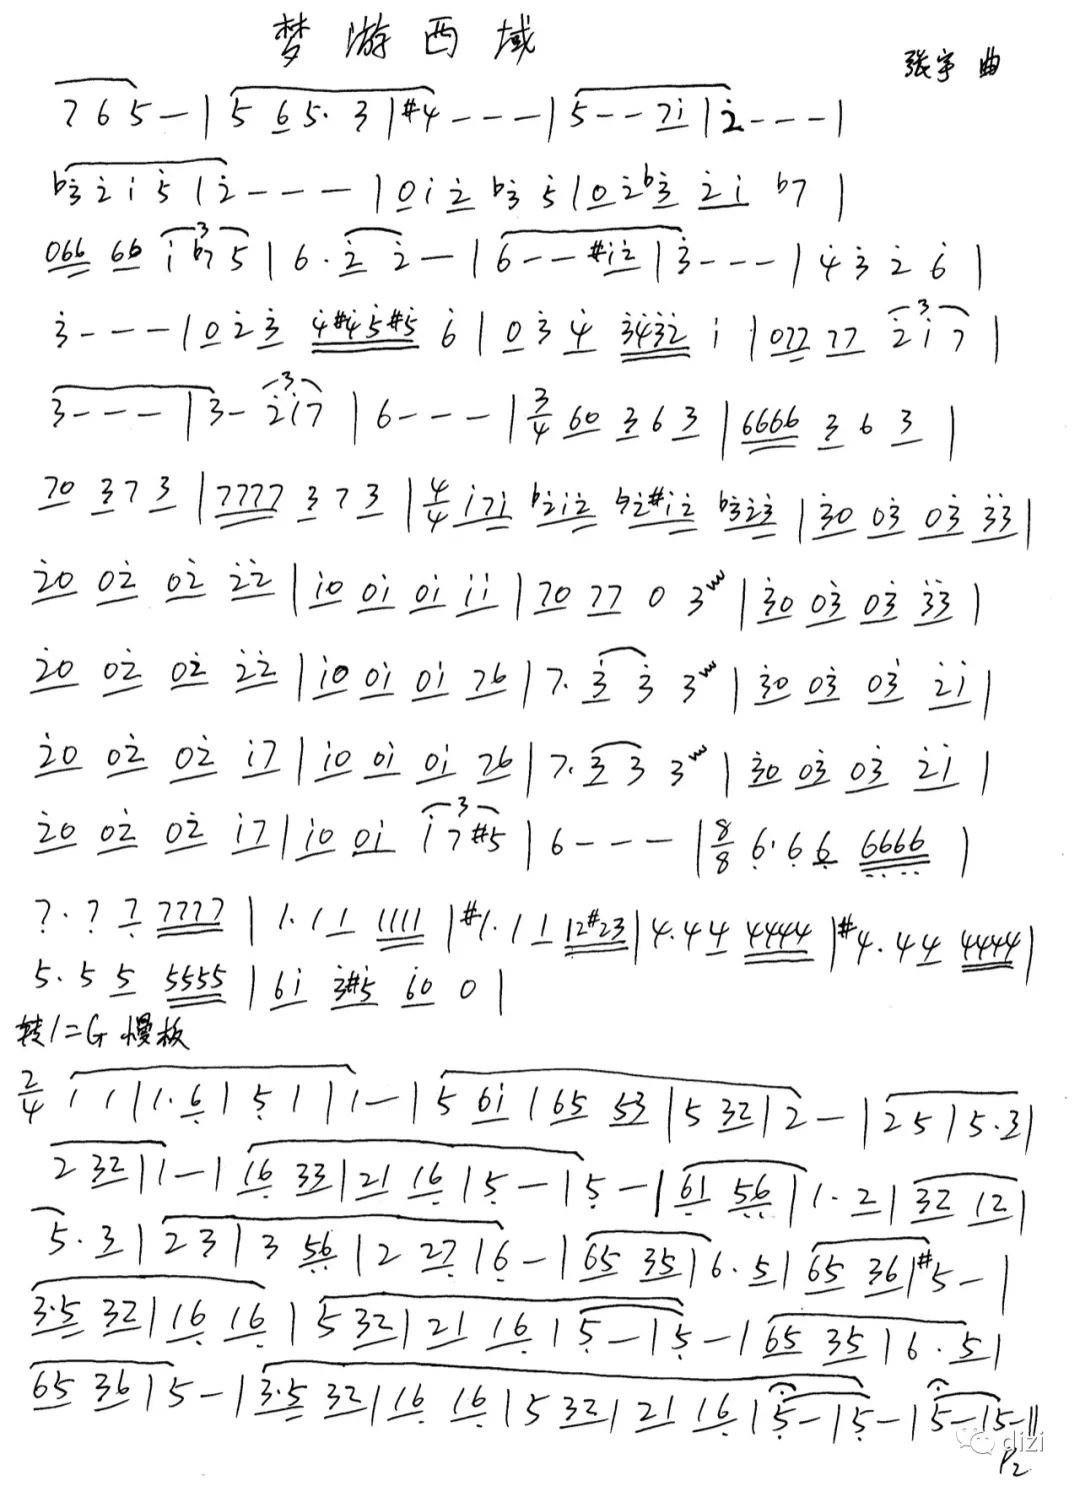 梦游西域
张宇 曲
7 6 5 – | 5 6 5· 3 | #4 - - - | 5 - - 7 i | 2 - - - |
b3 2 i 5 | 2 - - - | 0 i 2 b3 5 | 0 2 b3 2 i b7 |
066 66 i b7 5 | 6 · 2 2 – | 6 - - #i 2 | 3 - - - | 4 3 2 6 |
3 - - - | 0 2 3 4#45#5 6 | 0 3 4 3432 i | 077 77 2 i 7 |
3 - - - | 3 - 2i7 | 6 - - - | 3/4 60 3 6 3 | 6666 3 6 3 |
70 3 7 3 | 7777 3 7 3 | 4/4 i7i b2i2 2#i2 b323 | 30 03 03 33 |
20 02 02 22 | i0 0i 0i ii | 70 77 0 3 | 30 03 03 33 |
20 02 02 22 | i0 0i 0i 76 | 7· 3 3 3 | 30 03 03 2i |
20 02 02 i7 | i0 0i 0i 76 | 7· 3 3 3 | 30 03 03 2i |
20 02 02 i7 | i0 0i i 7 #5 | 6 - - - | 8/8 6· 6 6 6666 |
7· 7 7 7777 | 1· 1 1 1111 | #1· 1 1 12#23 | 4· 4 4 4444 | #4· 4 4 4444 |
5· 5 5 5555 | 6i 3#5 i0 0 |
转1=G 慢板
2/4 1 1 | 1· 6 | 5 1 | 1 – | 5 6i | 65 53 | 5 32 | 2 – | 2 5 | 5· 3 |
2 32 | 1 – | 16 33 | 21 16 | 5 – | 5 – | 61 56 | 1· 2 | 32 12 |
5· 3 | 2 3 | 3 56 | 2 27 | 6 – | 65 35 | 6· 5 | 65 36 | #5 – |
3·5 32 | 16 16 | 5 32 | 21 16 | 5 – | 5 – | 65 35 | 6· 5 |
65 36 | 5 – | 3·5 32 | 16 16 | 5 32 | 21 16 | 5 – | 5 – | 5 – | 5 – ‖
dizi
P2